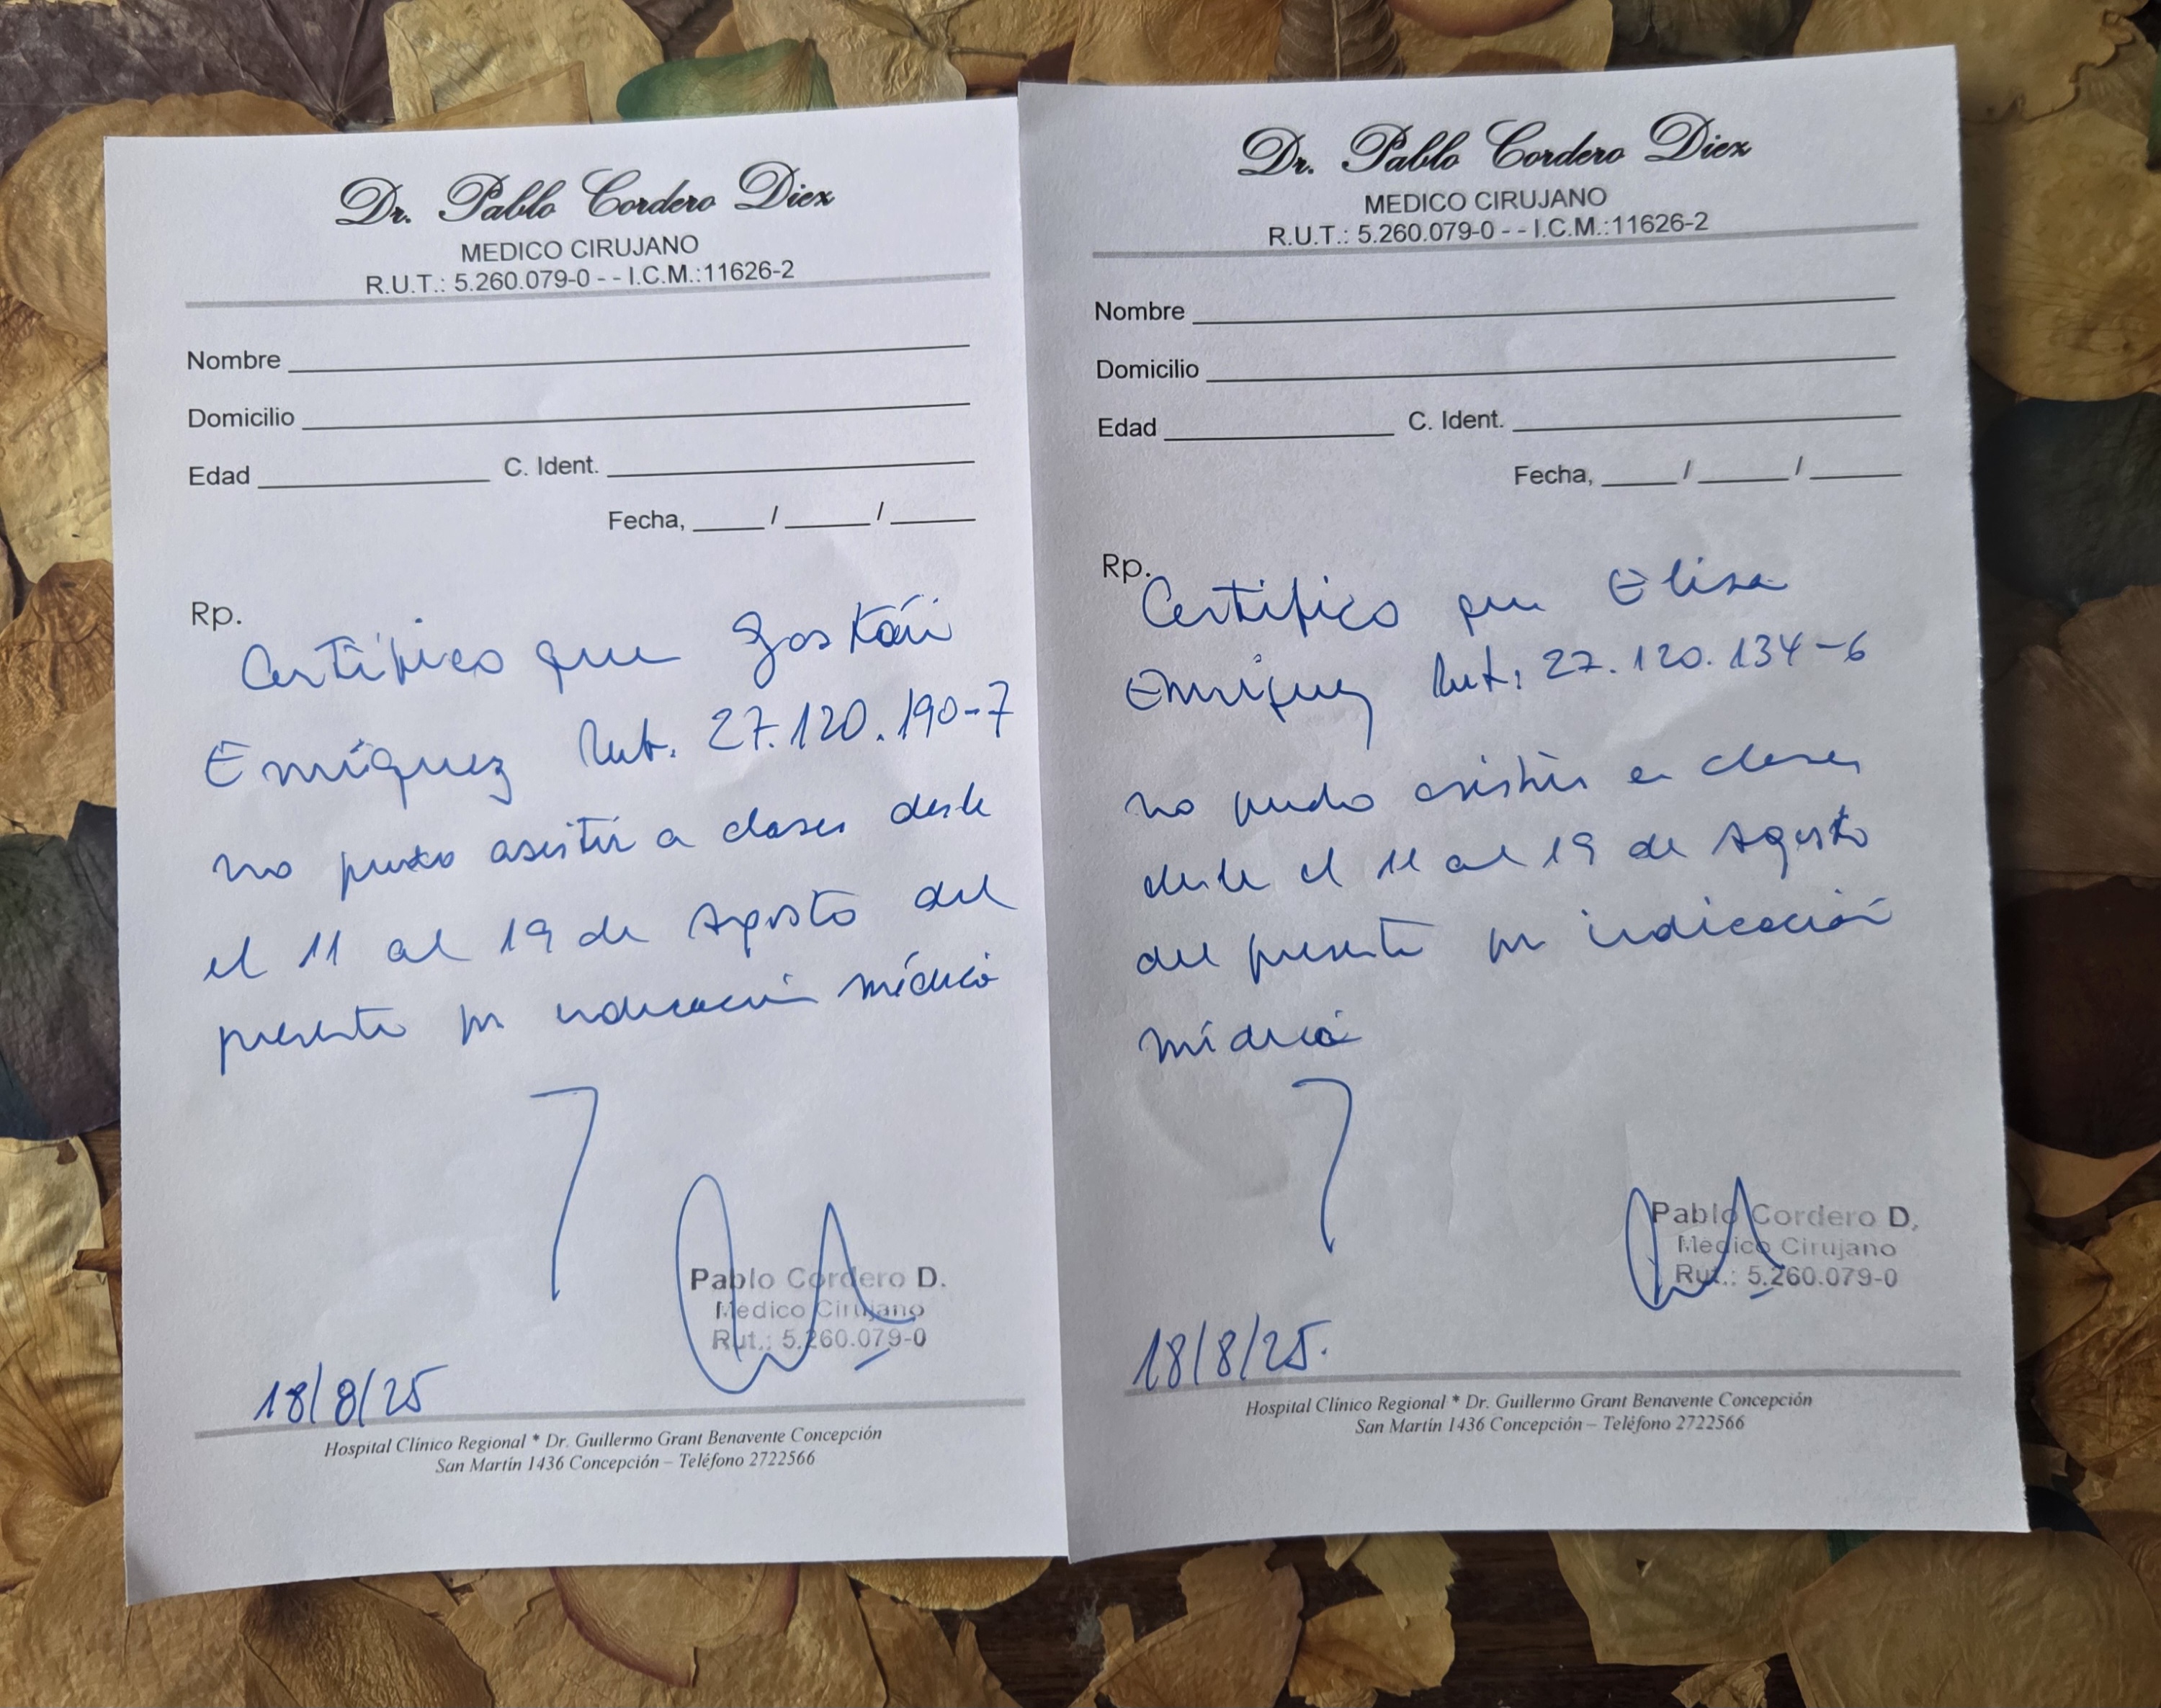 Dr. Pablo Cordero Diez
MEDICO CIRUJANO
R.U.T.: 5.260.079-0 - - I.C.M.:11626-2
Nombre
Domicilio
Edad C. Ident.
Fecha, / /
Rp.
Certifico que Gastón
Enríquez Rut. 27.120.190-7
no pudo asistir a clases desde
el 11 al 19 de Agosto del
presente por indicación médica
Pablo Cordero D.
Medico Cirujano
Rut.: 5.260.079-0
18/8/25
Hospital Clínico Regional * Dr. Guillermo Grant Benavente Concepción
San Martín 1436 Concepción – Teléfono 2722566
Dr. Pablo Cordero Diez
MEDICO CIRUJANO
R.U.T.: 5.260.079-0 - - I.C.M.:11626-2
Nombre
Domicilio
Edad C. Ident.
Fecha, / /
Rp.
Certifico que Elisa
Enríquez Rut. 27.120.134-6
no pudo asistir a clases
desde el 11 al 19 de Agosto
del presente por indicación
médica
Pablo Cordero D.
Medico Cirujano
Rut.: 5.260.079-0
18/8/25.
Hospital Clínico Regional * Dr. Guillermo Grant Benavente Concepción
San Martín 1436 Concepción – Teléfono 2722566